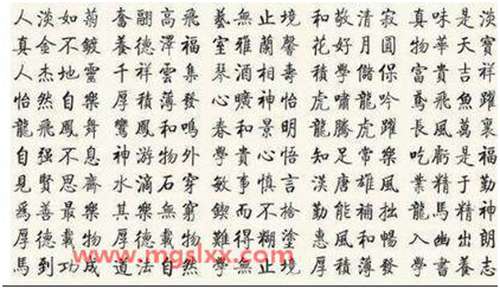 人淡如菊 奮翩高飛 藝無止境 和敬清寂 真味是淡
真金不鍍 養德澤福 室雅蘭馨 花好月圓 物華天寶
人杰地靈 千祥雲集 琴 相壽 積學儲 富貴吉祥
怡然自樂 厚積薄發 曠神怡 虎嘯龍吟 鳶飛魚躍
龍飛鳳舞 鸞鳳和鳴 春和景明 龍騰虎躍 長風萬里
自强不息 神游物外 學貴心悟 知足常樂 吃虧是福
見賢思齊 水滴石穿 敏事慎言 漢唐雄風 業精于勤
爲善最樂 其樂無窮 鍥而不捨 勤能補拙 龍馬精神
厚德載物 難得糊塗 惠風和暢 入幽出朗
www.mgslxx.com
馬到功成 道法自然 學無止境 厚積薄發 學書養志